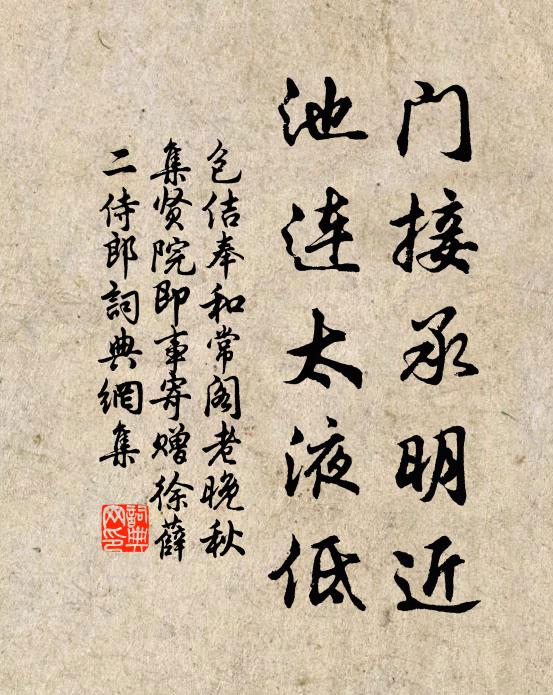 门接承明近
池连太液低
包佶奉和常阁老晚秋
集贤院即事寄赠徐薛
二侍郎詞典網集
詞典
网印